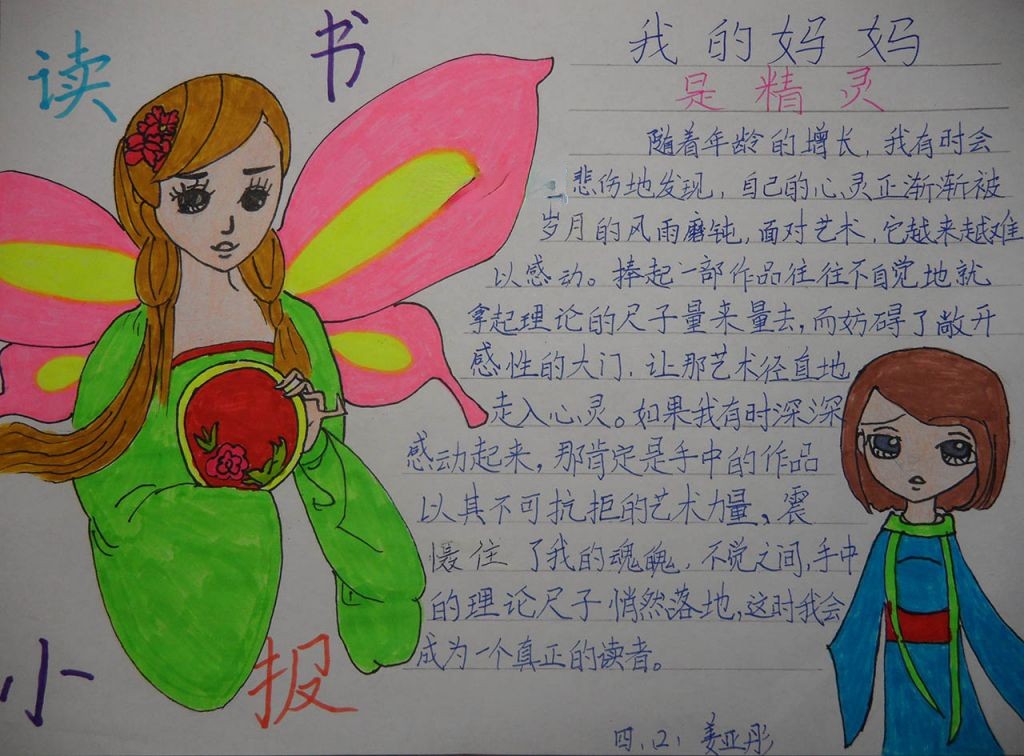 读书
小报
我的妈妈
是精灵
随着年龄的增长,我有时会
悲伤地发现,自己的心灵正渐渐被
岁月的风雨磨钝,面对艺术,它越来越难
以感动。捧起一部作品往往不自觉地就
拿起理论的尺子量来量去,而妨碍了敞开
感性的大门,让那艺术径直地
走入心灵。如果我有时深深
感动起来,那肯定是手中的作品
以其不可抗拒的艺术力量,震
慑住了我的魂魄,不觉之间,手中
的理论尺子悄然落地,这时我会
成为一个真正的读者。
四、2、姜亚彤